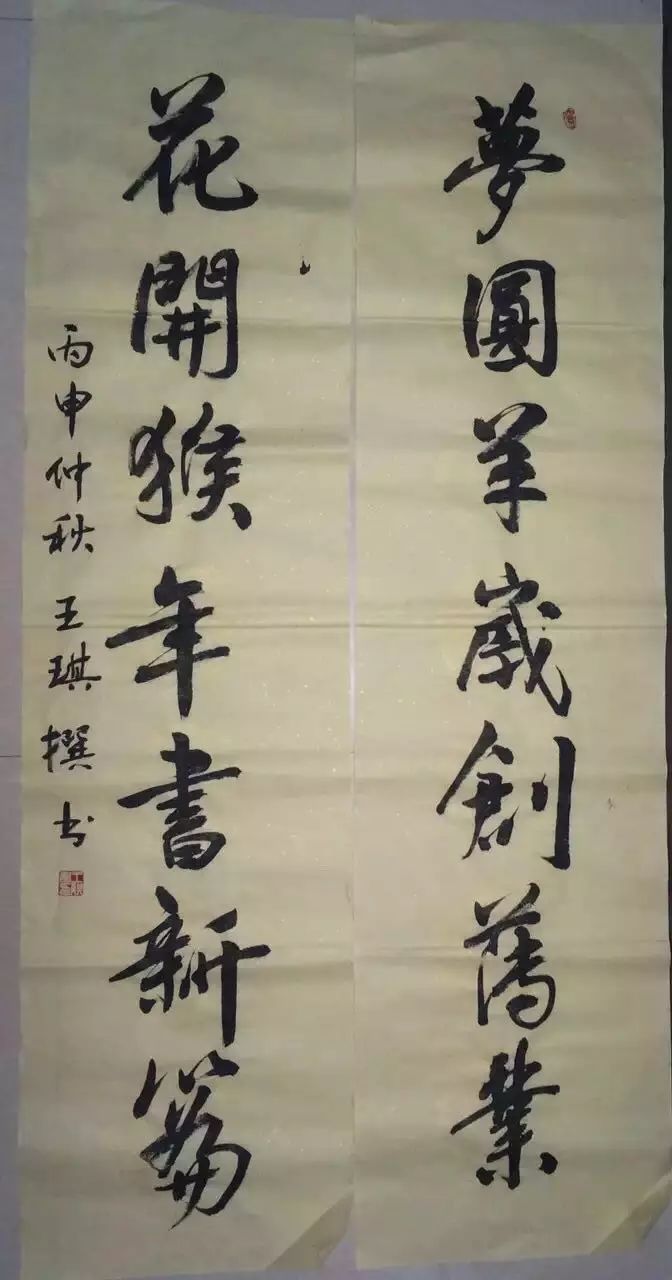 夢圓羊歲創舊業
花開猴年書新篇
丙申仲秋王琪撰书